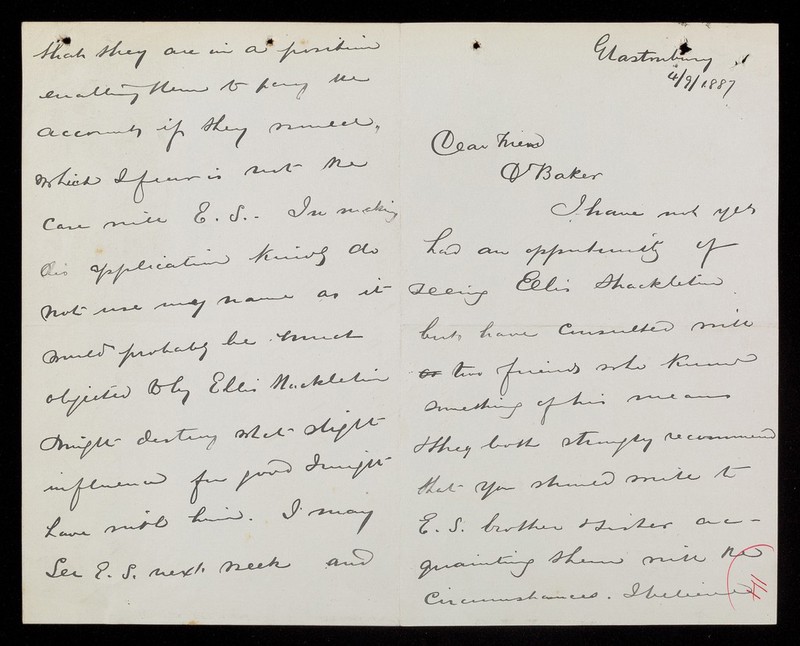 Glastonbury
4/9/1887
Dear Friend
Dr Baker
I have not yet
had an opportunity of
seeing Ellis Shackleton
but have consulted with
or two friends who know
something of his means
& they both strongly recommend
that you should write to
E. S. brother & sister ac-
quainting them with the
circumstances. I believe
41
that they are in a position
enabling them to pay the
accounts if they would,
which I fear is not the
case with E. S. - In making
this application kindly do
not use my name as it
would probably be much
objected to by Ellis Shackleton
& might destroy what slight
influence for good I might
have with him. I may
see E. S. next week and